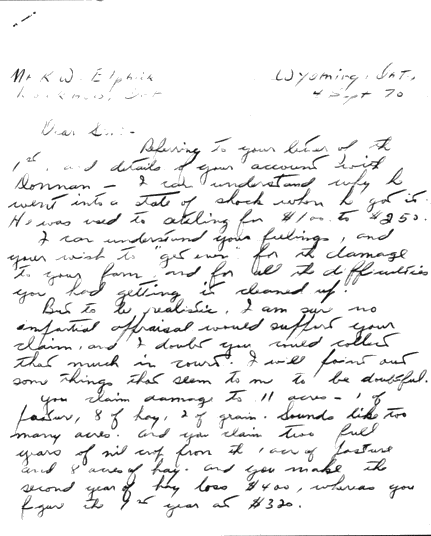 Mr K W. Elphick
Wyoming, Ont.
4 Sept 70
Dear Sir:-
Referring to your letter of the
1st. and details of your account with
Donnan - I can understand why he
went into a state of shock when he got it.
He was used to settling for $100. to $250.
I can understand your feelings, and
your wish to "get even" for the damage
to your farm, and for all the difficulties
you had getting it cleaned up.
But to be realistic, I am sure no
impartial appraisal would support your
claim, and I doubt you could collect
that much in court. I will point out
some things that seem to me to be doubtful.
You claim damage to 11 acres - 1 of
pasture, 8 of hay, 2 of grain. Sounds like too
many acres. And you claim two full
years of nil crop from the 1 acre of pasture
and 8 acres of hay. And you make the
second year of hay loss $400, whereas you
figure the 1st year at $320.